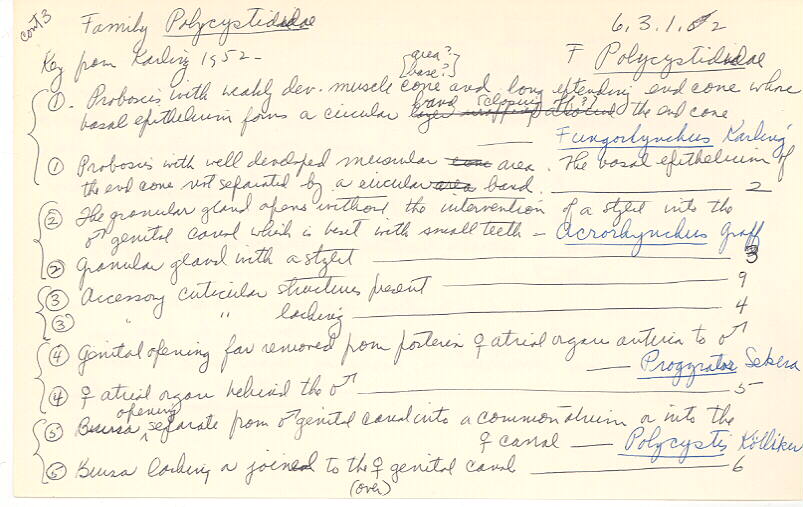 cont 3
Family Polycystididae
6.3.1.02
Key from Karling 1952-
F Polycystididae
[area?]
[base?]
1. Proboscis with weakly dev. muscle cone and long extending end cone whose
basal epithelium forms a circular band [closing off?] the end cone
Fungorhynchus Karling
1 Proboscis with well developed muscular cone area. The basal epithelium of
the end cone not separated by a circular area band. 2
2 The granular gland opens without the intervention of a stylet into the
♂ genital canal which is beset with small teeth - Acrorhynchus Graff
2 Granular gland with a stylet 3
3 Accessory cuticular structures present 9
3 " " lacking 4
4 Genital opening far removed from posterior ♀ atrial organs anterior to ♂
Progyrator Sekera
4 ♀ atrial organs behind the ♂ 5
opening
5 Bursa separate from ♂ genital canal into a common atrium or into the
♀ canal - Polycystis Kölliker
5 Bursa lacking or joined to the ♀ genital canal 6
(over)